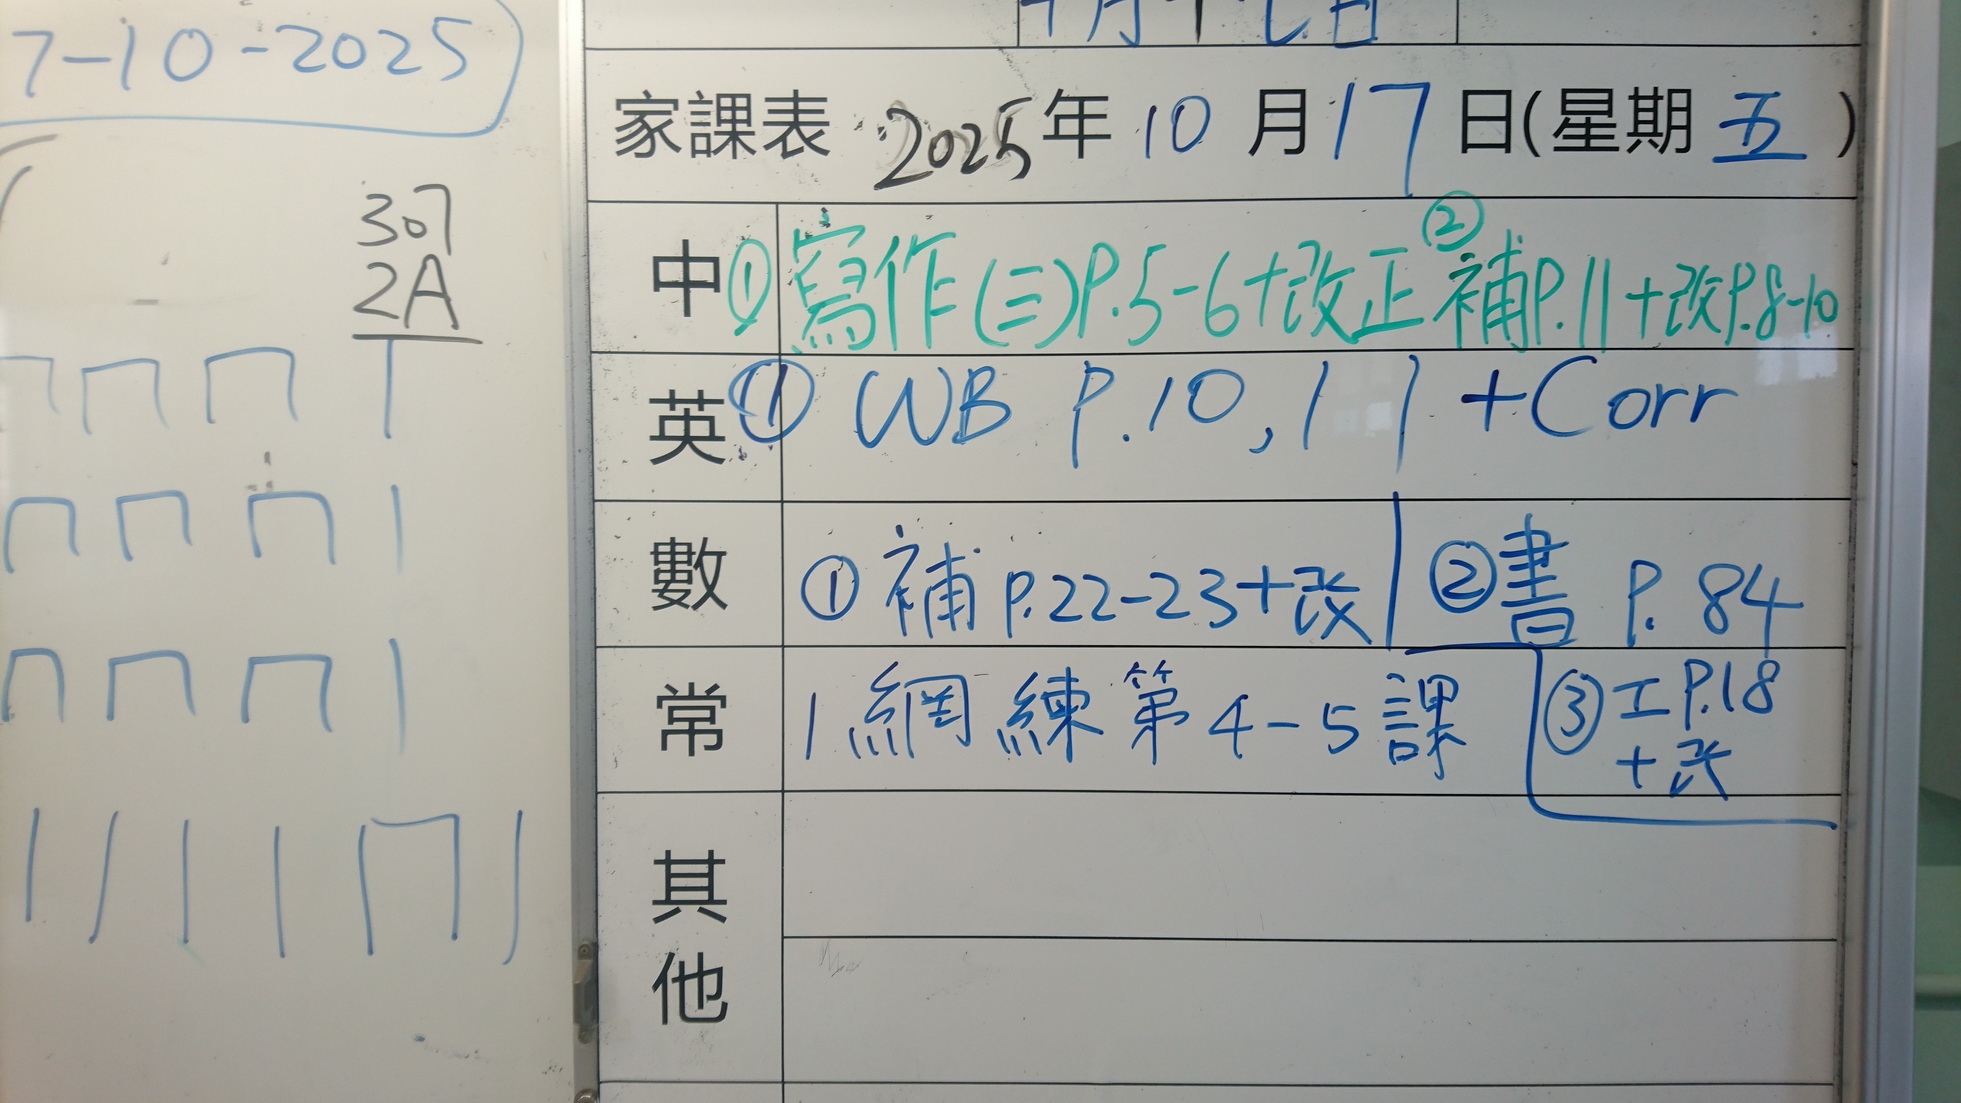 7-10-2025
307
2A
十月十七日
家課表 2025年10月17日(星期五)
中 ①寫作(三)P.5-6+改正 ②補P.11+改P.8-10
英 ① WB P.10,11 +Corr
數 ①補P.22-23+改 ②書 P.84
常 1.網練第4-5課
③工P.18
+改
其他